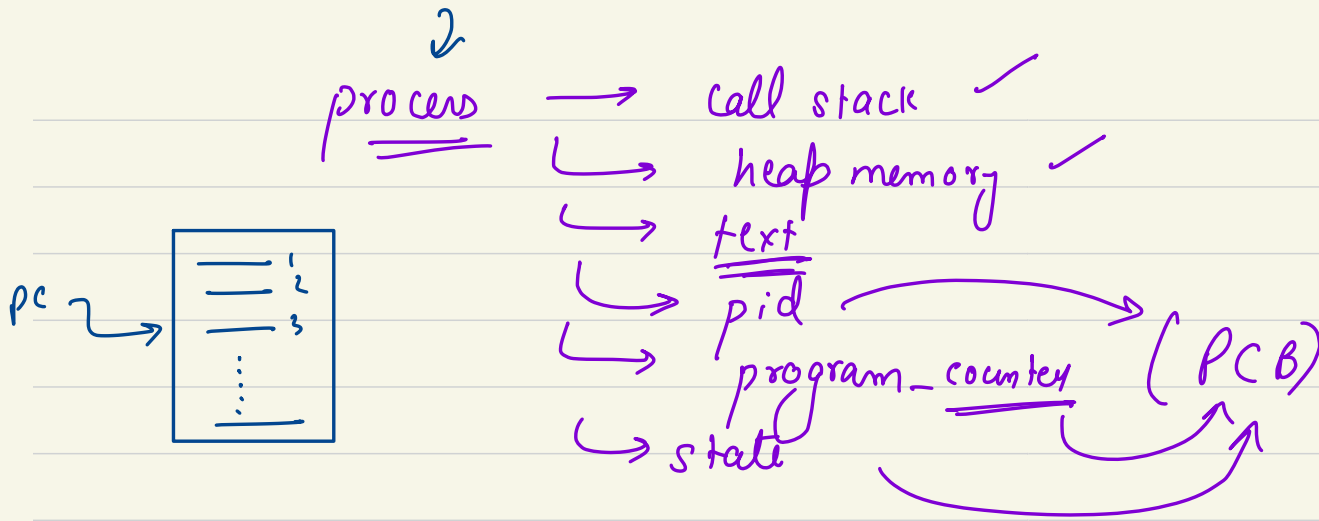 process → call stack ✓
↳ heap memory ✓
↳ text
↳ pid
↳ program_counter
↳ state
(PCB)
1
2
PC
3